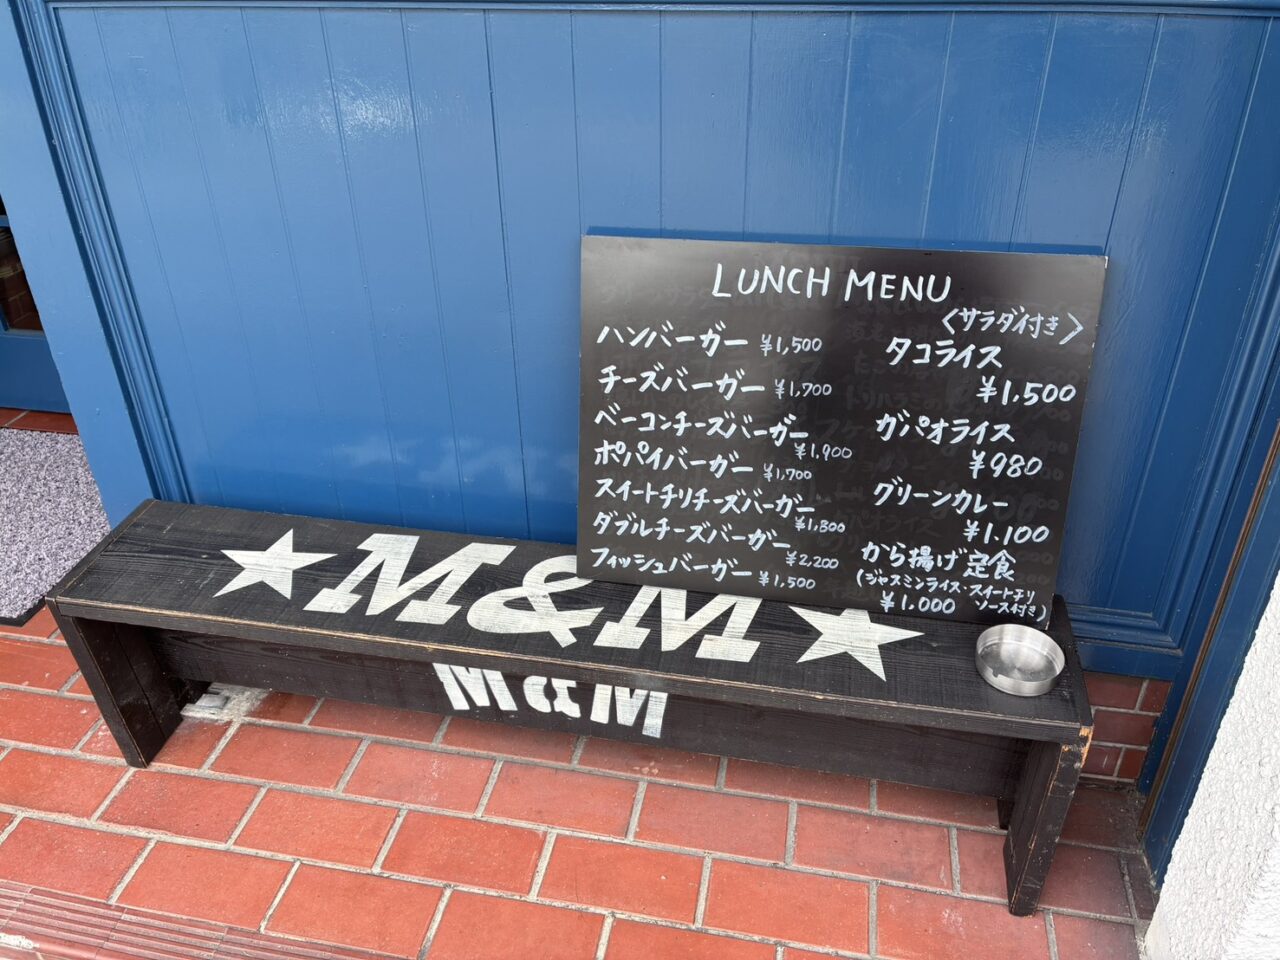 LUNCH MENU
〈サラダ付き〉
ハンバーガー ¥1,500
チーズバーガー ¥1,700
ベーコンチーズバーガー
¥1,900
ポパイバーガー ¥1,700
スイートチリチーズバーガー
¥1,800
ダブルチーズバーガー
¥2,200
フィッシュバーガー ¥1,500
タコライス
¥1,500
ガパオライス
¥980
グリーンカレー
¥1,100
から揚げ定食
(ジャスミンライス・スイートチリ
ソース付き)
¥1.000
★M&M★
M&M